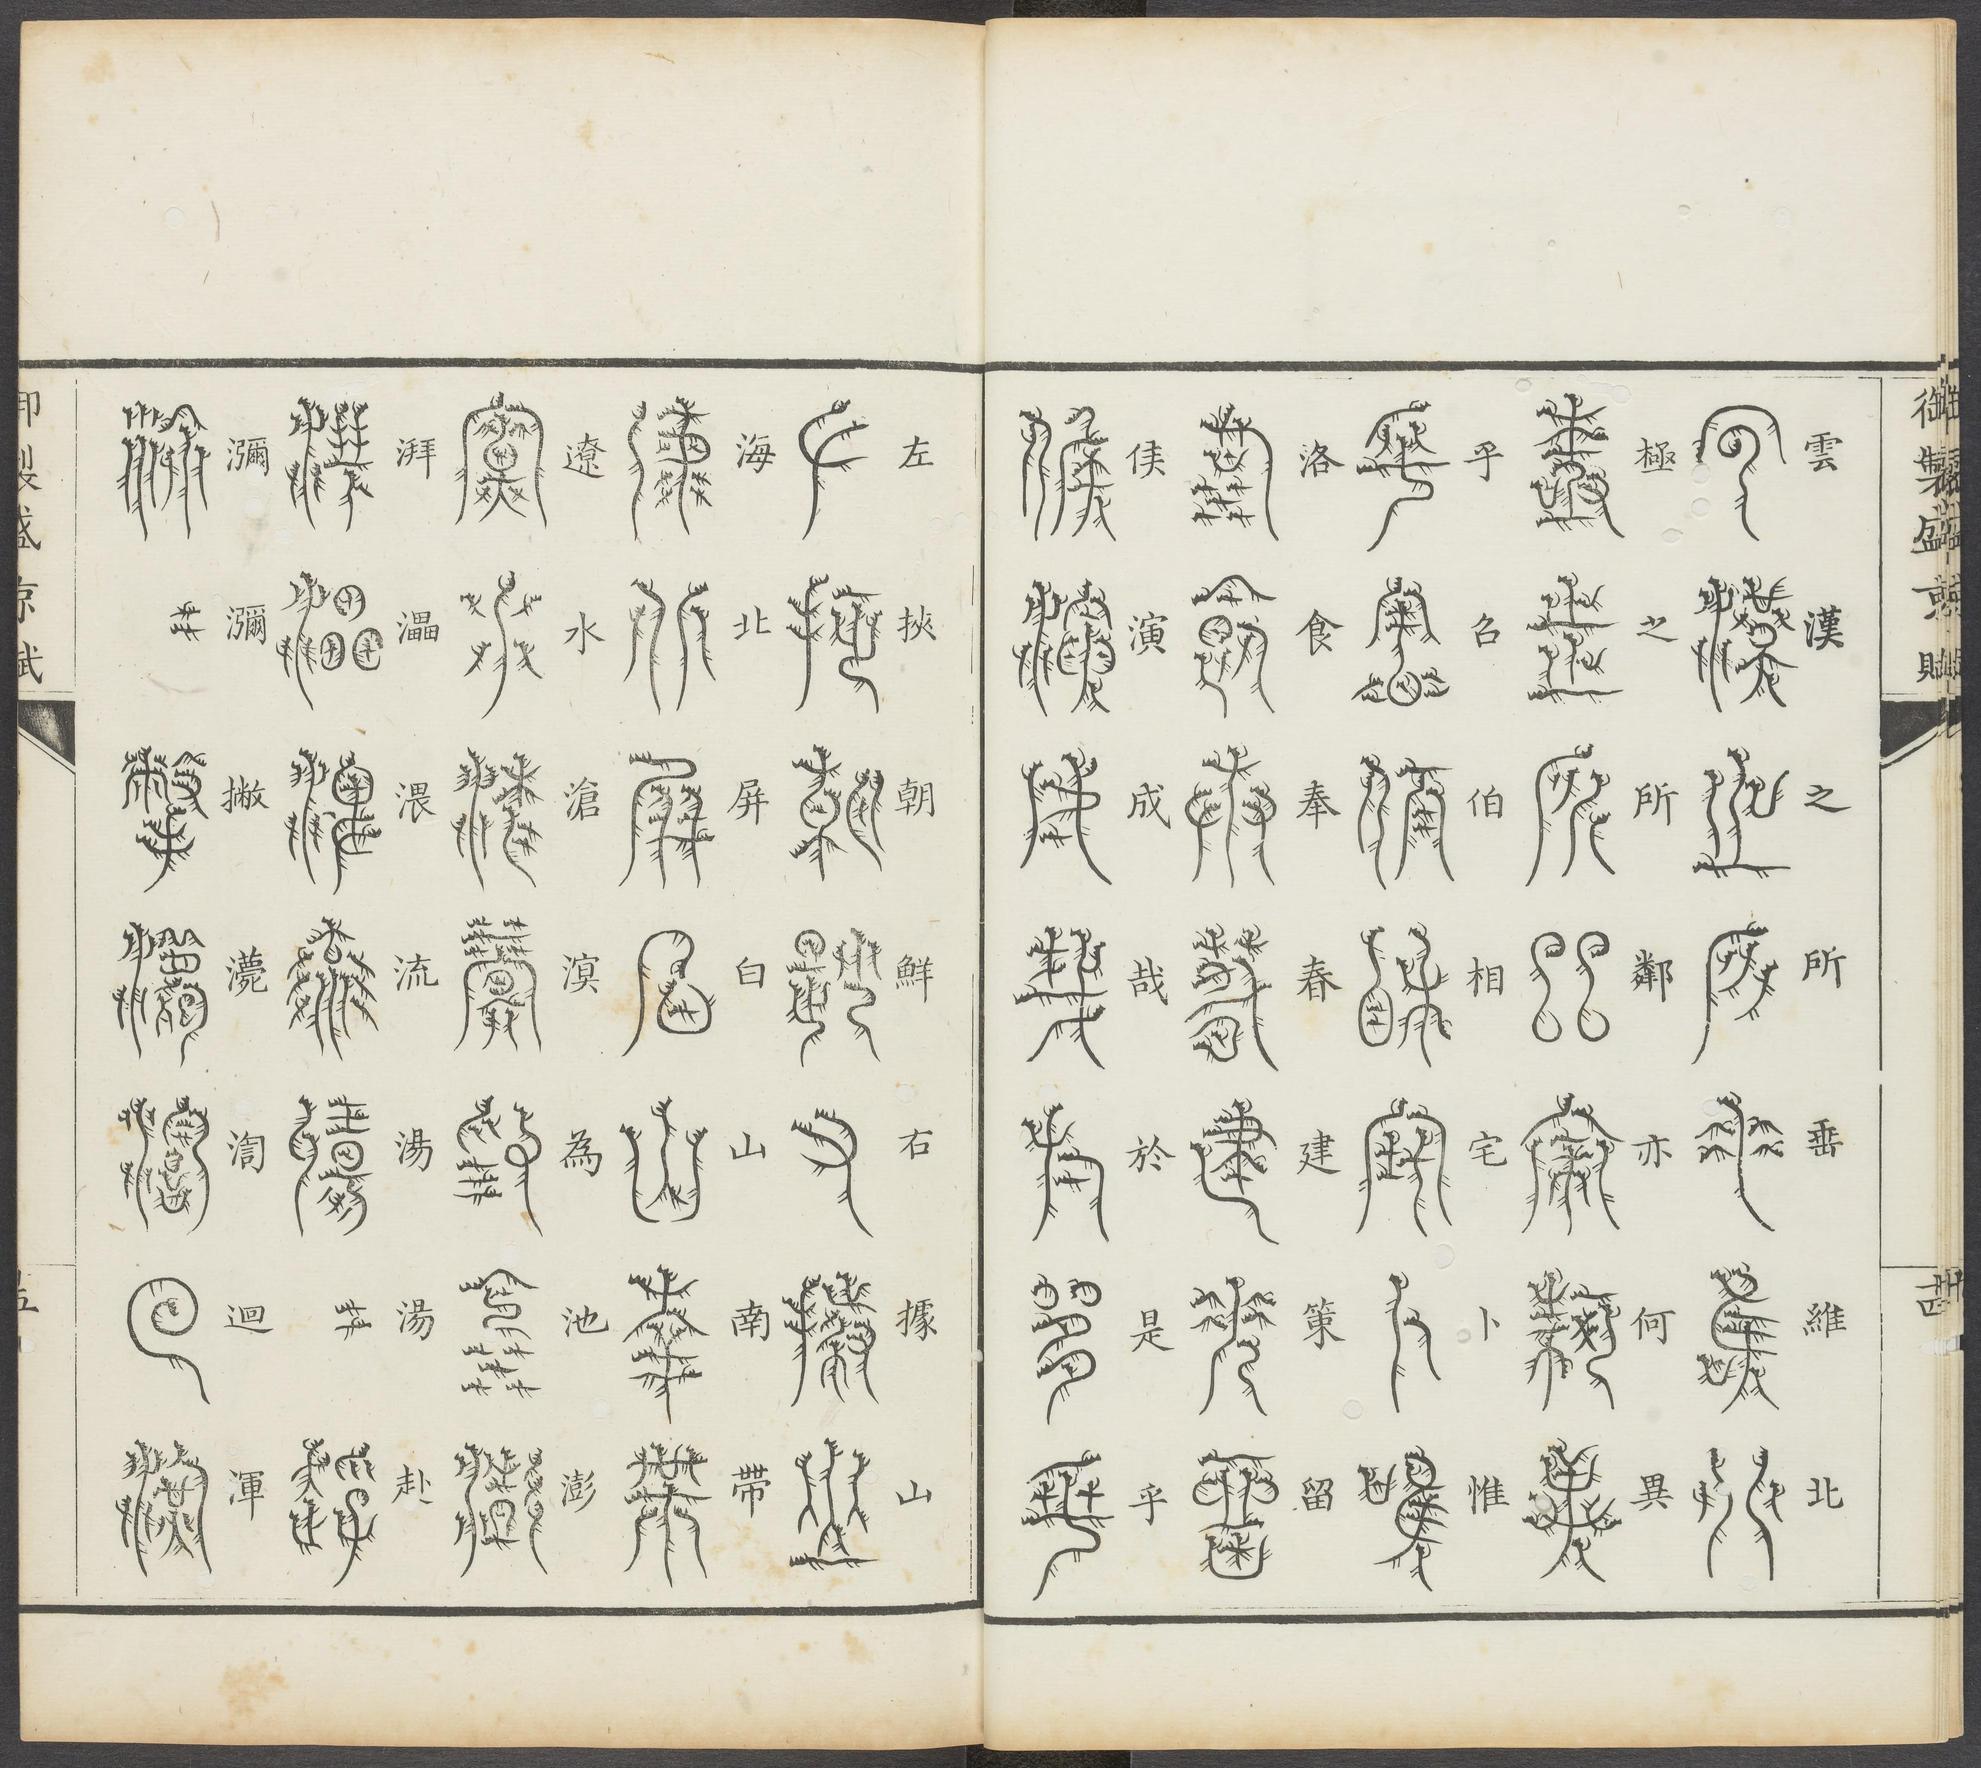 御製盛京賦
雲漢之所垂維北
極之所鄰亦何異
乎召伯相宅卜惟
洛食奉春建策留
侯演成哉於是乎
左挾朝鮮右據山
海北屏白山南帶
遼水滄溟為池澎
湃溫渨流湯湯赴
瀰瀰撇灪渹迴渾
御製盛京賦